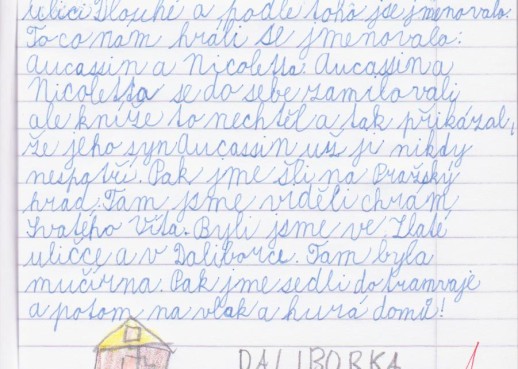 ulici Dlouhé a podle toho jse jmenovalo.
To co nám hráli se jmenovalo:
Aucassin a Nicoletta. Aucassin a
Nicoletta se do sebe zamilovali
ale kníže to nechtěl a tak přikázal,
že jeho syn Aucassin už ji nikdy
nespatří. Pak jme šli na Pražský
hrad. Tam jsme viděli chrám
Svatého Víta. Byli jsme ve Zlaté
uličce a v Daliborce. Tam byla
mučírna. Pak jme sedli do tramvaje
a potom na vlak a hurá domů!
DALIBORKA